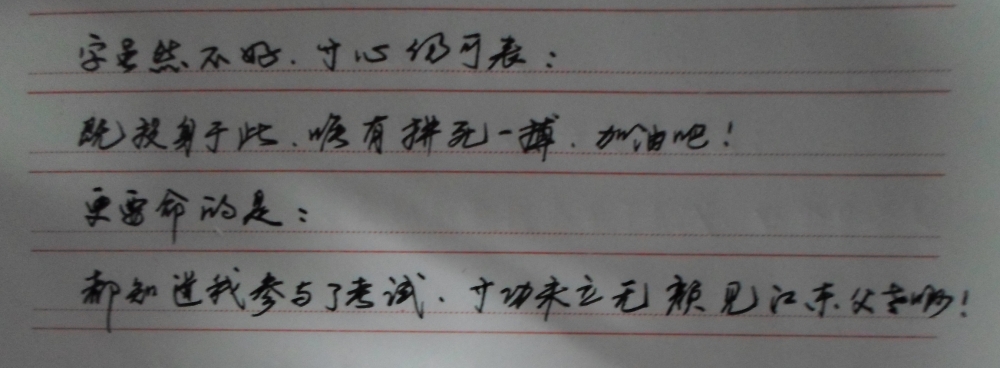 字虽然不好、寸心仍可表：
既投身于此、唯有拼死一搏、加油吧！
更要命的是：
都知道我参与了考试、寸功未立无颜见江东父老啊！